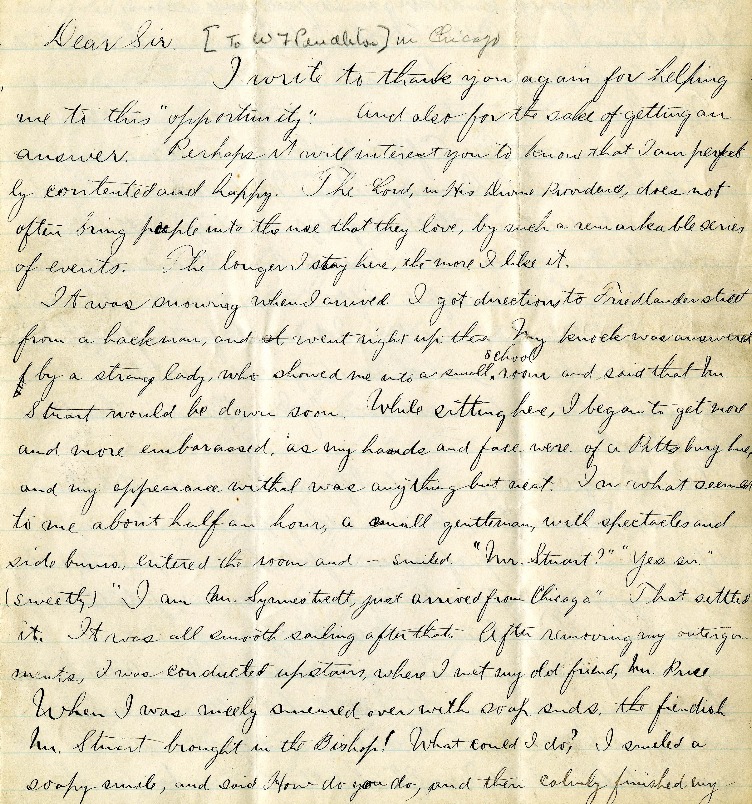 Dear Sir. [To W F Pendleton] in Chicago
I write to thank you again for helping
me to this "opportunity". And also for the sake of getting an
answer. Perhaps it will interest you to know that I am perfect
ly contented and happy. The Lord, in His Divine Providence, does not
often bring people into the use that they love, by such a remarkable series
of events. The longer I stay here, the more I like it.
It was snowing when I arrived I got directions to Friedlander street
from a hackman, and I went right up there My knock was answered
by a strange lady, who showed me into a small school room and said that Mr
Stuart would be down soon. While sitting here, I began to get more
and more embarassed, as my hands and face were of a Pittsburg hue,
and my appearance withal was anything but neat. In what seemed
to me about half an hour, a small gentleman, with spectacles and
side burns, entered the room and -- smiled. "Mr. Stuart?" "Yes sir"
(sweetly) "I am Mr. Synnestvedt, just arrived from Chicago" That settled
it. It was all smooth sailing after that. After removing my outergar
ments, I was conducted upstairs, where I met my old friend, Mr. Price
When I was nicely smeared over with soap suds, the fiendish
Mr. Stuart brought in the Bishop! What could I do? I smiled a
soapy smile, and said How do you do, and then calmly finished my